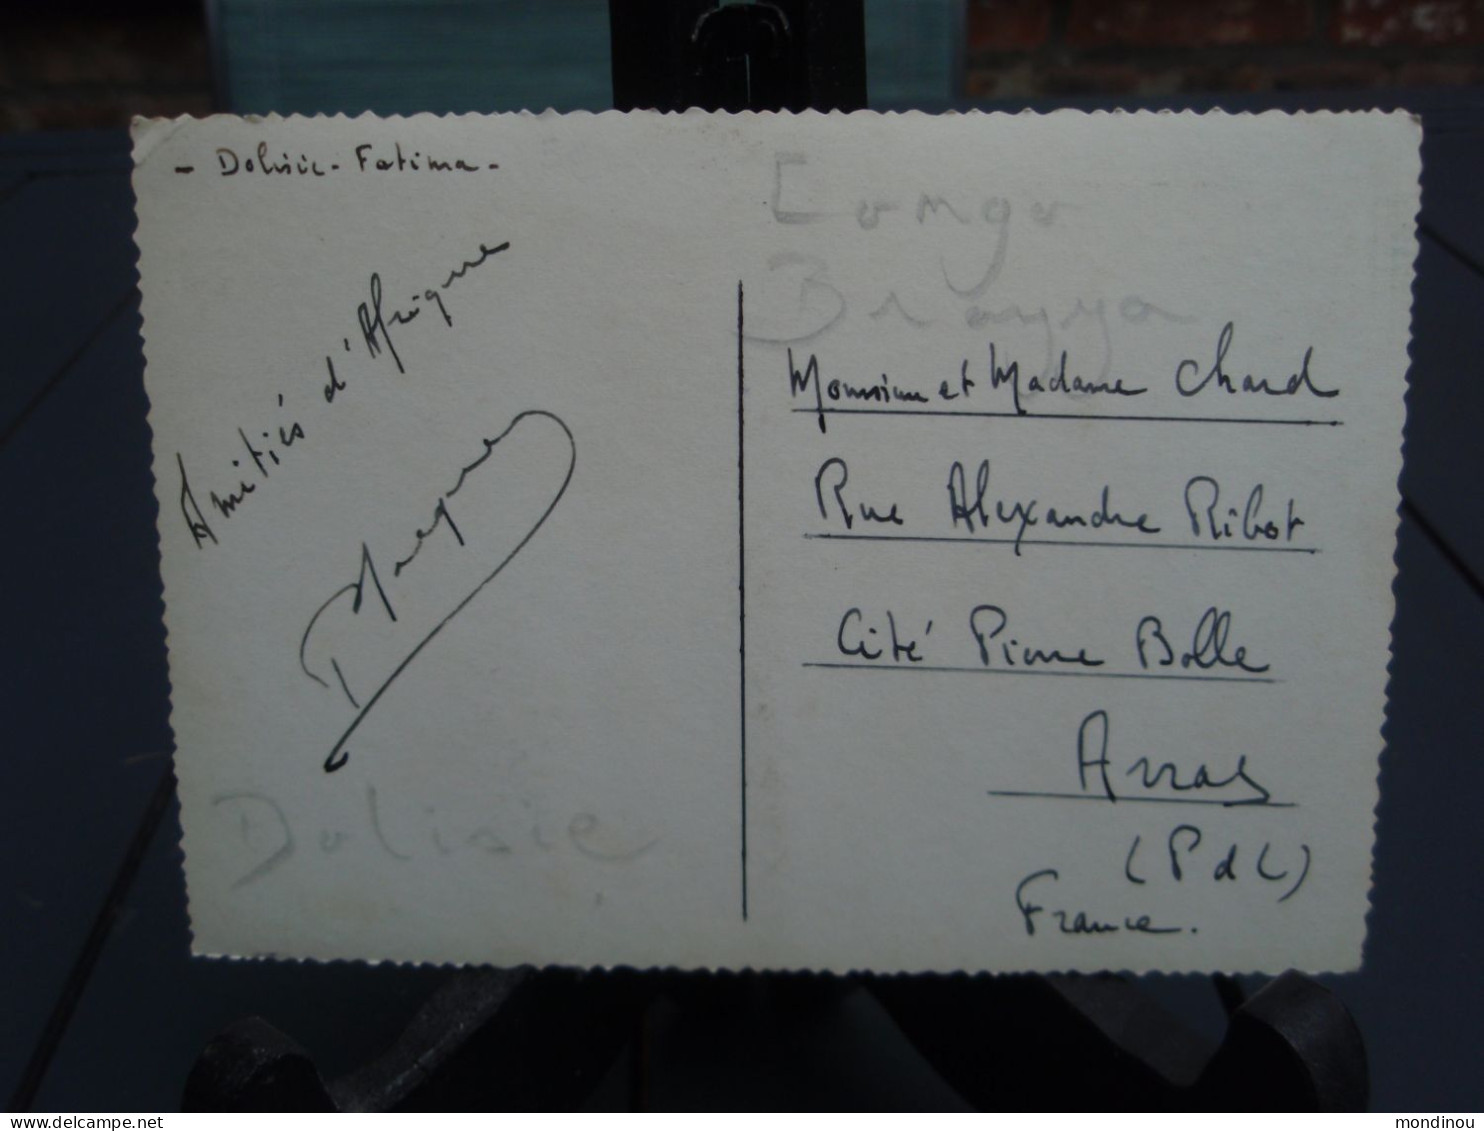 - Dolisie - Fatima -
Amitiés d'Afrique
Dolisie
Congo
Brazza
Monsieur et Madame Chard
Rue Alexandre Ribot
Cité Pierre Bolle
Arras
(PdC)
France.
mondinou